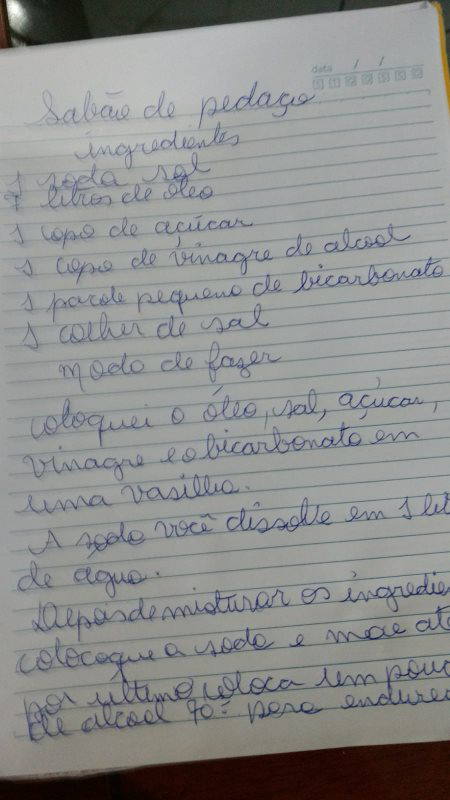 data / /
Sabão de pedaço
ingredientes
1 soda sol
7 litros de óleo
1 copo de açúcar
1 copo de vinagre de alcool
1 pacote pequeno de bicarbonato
1 colher de sal
Modo de fazer
coloquei o óleo, sal, açúcar,
vinagre e o bicarbonato em
uma vasilha.
A soda você dissolve em 1 lit
de água.
Depois de misturar os ingredie
colocoque a soda e mexe até
por ultimo coloca um pouc
de alcool 70º para endurec